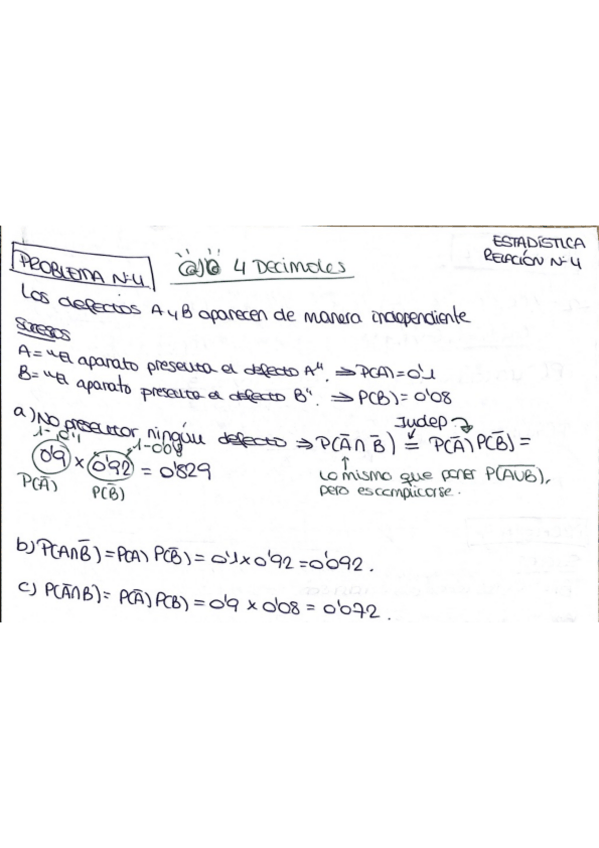 ESTADÍSTICA
RELACIÓN Nº 4
PROBLEMA Nº 4
4 Decimales
Los defectos A y B aparecen de manera independiente
Sucesos
A = "El aparato presenta el defecto A". ⇒ P(A) = 0'1
B = "El aparato presenta el defecto B". ⇒ P(B) = 0'08
a) No presentar ningún defecto ⇒ P(A̅ ∩ B̅) = P(A̅) P(B̅) =
Indep.
1-0'1 1-0'08
0'9 × 0'92 = 0'829
P(A̅) P(B̅)
Lo mismo que poner P(A∪B),
pero es complicarse.
b) P(A∩B̅) = P(A) P(B̅) = 0'1 × 0'92 = 0'092.
c) P(A̅∩B) = P(A̅) P(B) = 0'9 × 0'08 = 0'072.